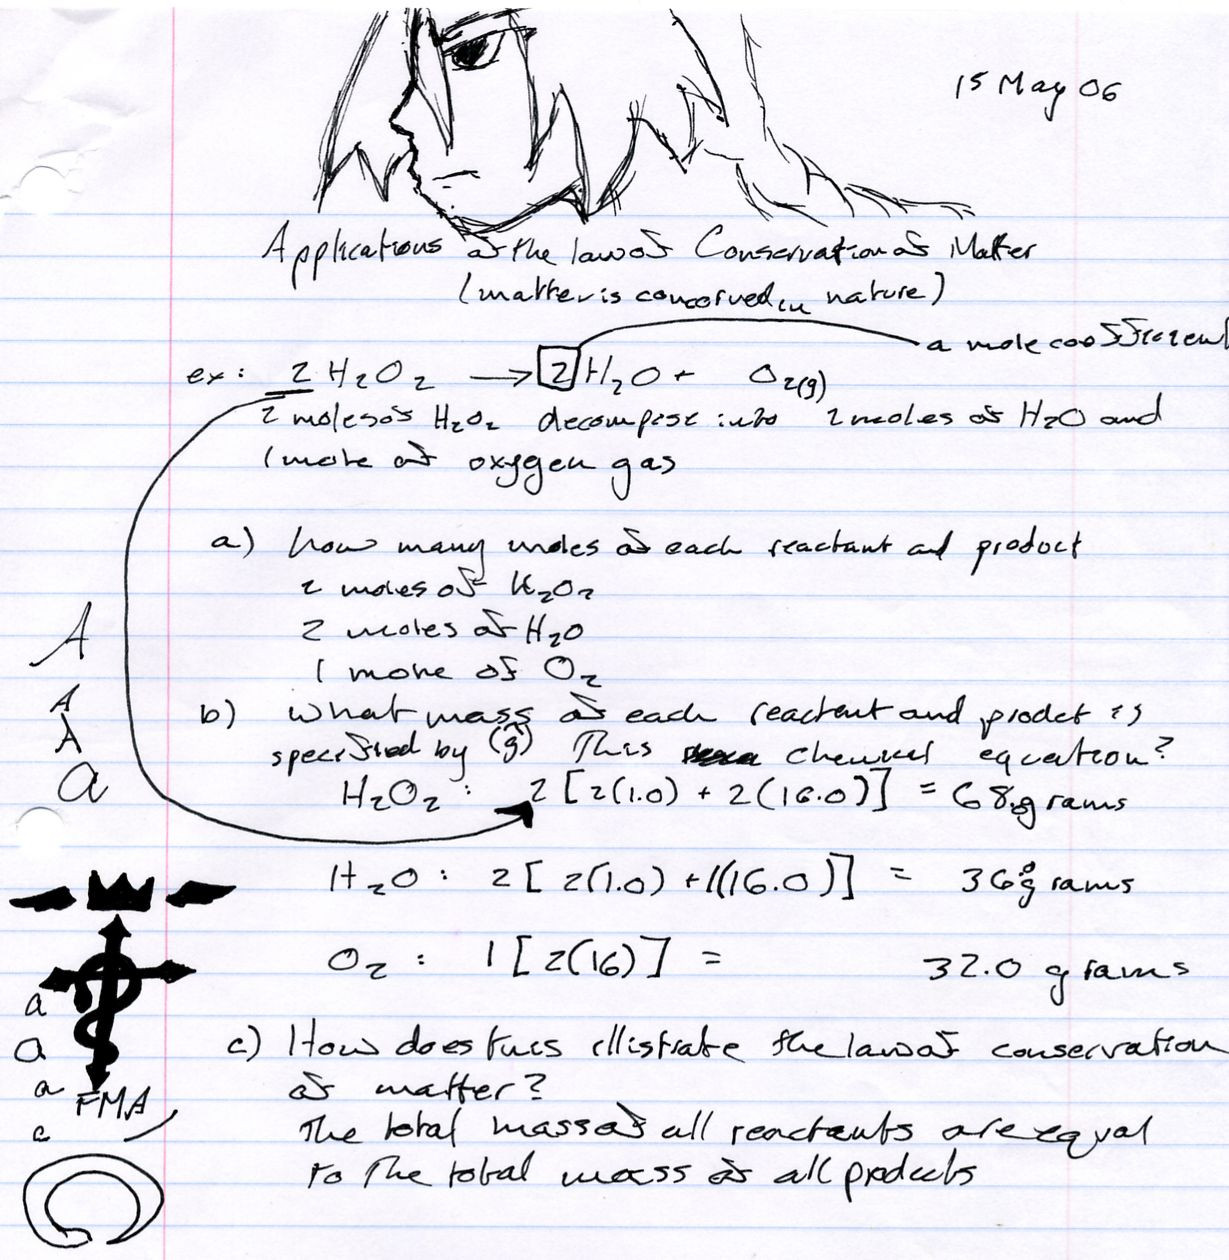 15 May 06
Applications of the law of Conservation of Matter
(matter is concerved in nature)
a mole coefficient
ex: 2 H₂O₂ → 2 H₂O + O₂(g)
2 moles of H₂O₂ decompose into 2 moles of H₂O and
1 mole of oxygen gas
a) how many moles of each reactant and product
2 moles of H₂O₂
2 moles of H₂O
A
1 mole of O₂
A
b) what mass of each reactent and prodct is
A
specified by (g) This chemical equcation?
a
H₂O₂: 2 [2(1.0) + 2(16.0)] = 68.grams
H₂O: 2 [2(1.0) + 1(16.0)] = 36 grams
O₂: 1 [2(16)] = 32.0 grams
a
c) How does this illistrate the law of conservation
a
of matter?
a
FMA
The total mass of all reactants are equal
to The total mass of all prodects